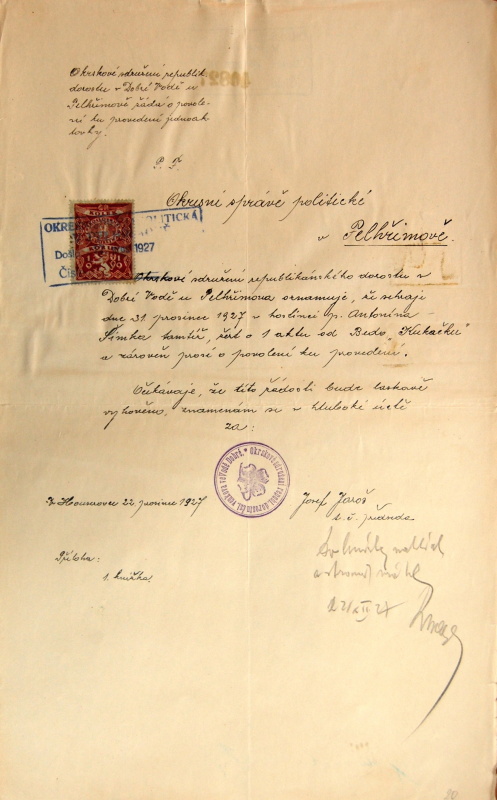 Okrskové sdružení republik.
dorostu v Dobré Vodě u
Pelhřimově žádá o povole-
ní ku provedení jednoak-
tovky.
P. T.
Okresní správě politické
v Pelhřimově.
OKRE POLITICKÁ
KOLEK
Doš 1927
Čís
Okrskové sdružení republikánského dorostu v
Dobré Vodě u Pelhřimova oznamuje, že sehraje
dne 31 prosince 1927 v hostinci p. Antonína
Šimka tamtéž, žert o 1 aktu od Bedo "Kukačku"
a zároveň prosí o povolení ku provedení.
Očekávaje, že této žádosti bude laskavě
vyhověno, znamenám se v hluboké úctě
za:
22. prosince 1927
Josef Jaroš
t. č. předseda
Příloha:
1. knížka.